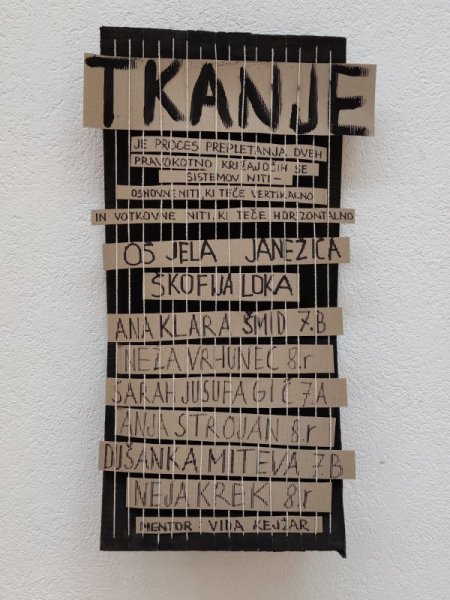 TKANJE
JE PROCES PREPLETANJA DVEH
PRAVOKOTNO KRIŽAJOČIH SE
SISTEMOV NITI –
OSNOVNE NITI, KI TEČE VERTIKALNO
IN VOTKOVNE NITI, KI TEČE HORIZONTALNO
OŠ JELA JANEŽIČA
ŠKOFJA LOKA
ANA KLARA ŠMID 7.B
NEŽA VRHUNEC 8.r
SARAH JUSUFAGIĆ 7.A
ANJA STROJAN 8.r
DUŠANKA MITEVA 7.B
NEJA KREK 8.r
MENTOR: VIDA KEJŽAR